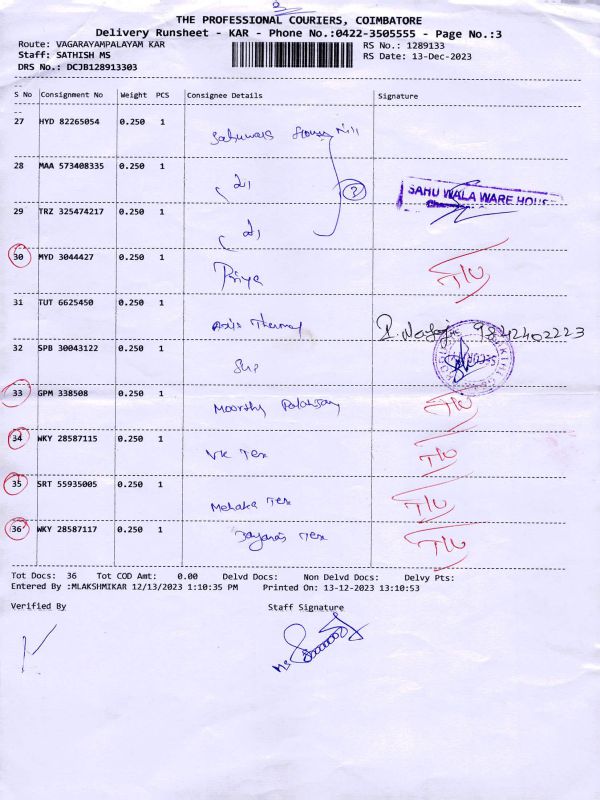 THE PROFESSIONAL COURIERS, COIMBATORE
Delivery Runsheet - KAR - Phone No.:0422-3505555 - Page No.:3
Route: VAGARAYAMPALAYAM KAR RS No.: 1289133
Staff: SATHISH MS RS Date: 13-Dec-2023
DRS No.: DCJB128913303
S No Consignment No Weight PCS Consignee Details Signature
27 HYD 82265054 0.250 1
28 MAA 573408335 0.250 1
SAHU WALA WARE HOUS
29 TRZ 325474217 0.250 1
30 MYD 3044427 0.250 1
Priya T/U
31 TUT 6625450 0.250 1
Axis Thermal 9842402223
32 SPB 30043122 0.250 1
33 GPM 338508 0.250 1
Moorthy T/U
34 WKY 28587115 0.250 1
VK Tex T/U
35 SRT 55935005 0.250 1
Mehaka Tex T/U
36 WKY 28587117 0.250 1
Tex T/U
Tot Docs: 36 Tot COD Amt: 0.00 Delvd Docs: Non Delvd Docs: Delvy Pts:
Entered By :MLAKSHMIKAR 12/13/2023 1:10:35 PM Printed On: 13-12-2023 13:10:53
Verified By Staff Signature